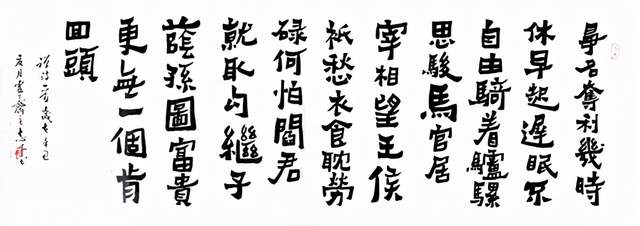 爭名奪利幾時
休早起遲眠不
自由騎着驢騾
思駿馬官居
宰相望王侯
祇愁衣食耽勞
碌何怕閻君
就取勾繼子
蔭孫圖富貴
更無一個肯
回頭
禪詩一首